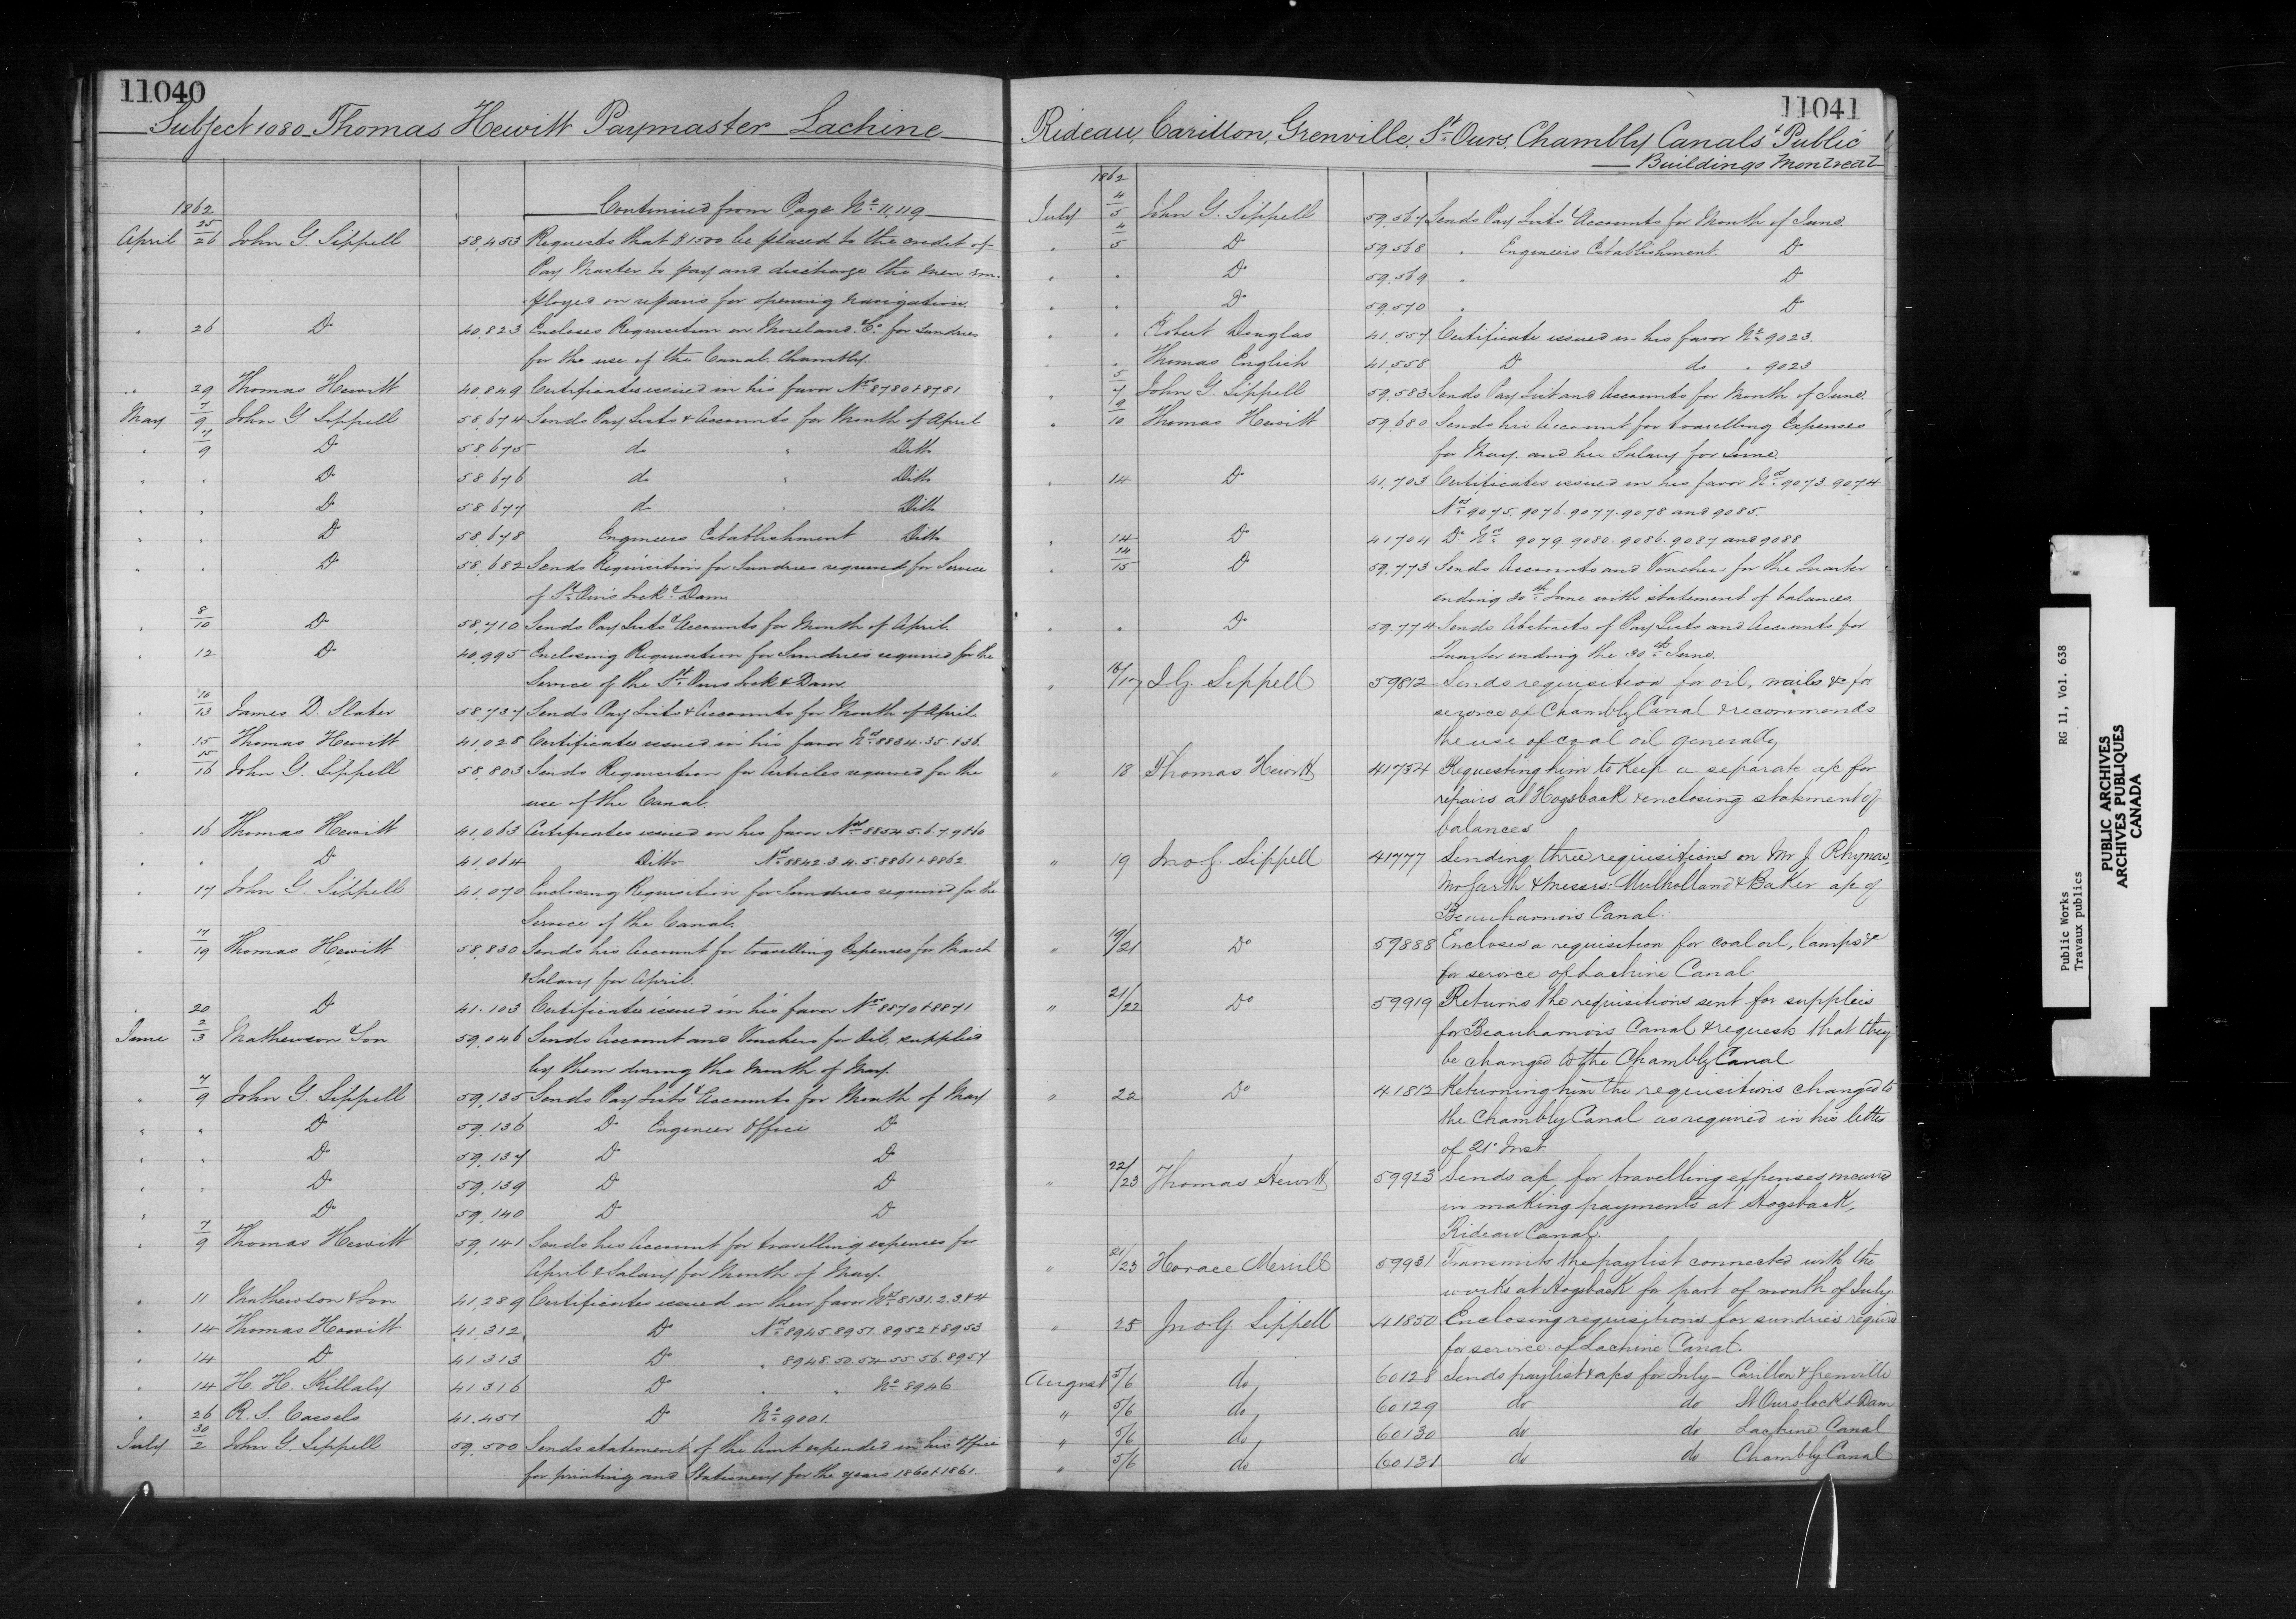 11040
Subject 1080 Thomas Hewitt Paymaster Lachine
1862 Continued from Page No 11,119
April 25/26 John G Sippell 58,453 Requests that $1500 be placed to the credit of
Pay Master to pay and discharge the men em-
ployed on repairs for opening navigation.
" 26 Do 40,823 Encloses Requisition on Moreland & Co for Sundries
for the use of the Canal Chambly.
" 29 Thomas Hewitt 40,849 Certificates issued in his favor Nos 8780 & 8781
May 7/9 John G Sippell 58,674 Sends Pay Lists & Accounts for Month of April
" 7/9 Do 58,675 do " Ditto
" " Do 58,676 do " Ditto
" " Do 58,677 do " Ditto
" " Do 58,678 Engineers Establishment Ditto
" " Do 58,682 Sends Requisition for Sundries required for Service
of St Ours Lock & Dam
" 8/10 Do 58,710 Sends Pay Lists & Accounts for Month of April.
" 12 Do 40,995 Enclosing Requisition for Sundries required for the
Service of the St Ours Lock & Dam
" 10/13 James D. Slater 58,737 Sends Pay Lists & Accounts for Month of April
" 15 Thomas Hewitt 41,028 Certificates issued in his favor Nos 8834.35.&36.
" 15/16 John G. Sippell 58,803 Sends Requisition for Articles required for the
use of the Canal.
" 16 Thomas Hewitt 41,063 Certificates issued in his favor Nos 8854.5.6.7.9&60
" " Do 41,064 Ditto Nos 8842.3.4.5.8861&8862
" 17 John G. Sippell 41,070 Enclosing Requisition for Sundries required for the
Service of the Canal.
" 17/19 Thomas Hewitt 58,830 Sends his Account for travelling Expenses for March
& Salary for April.
" 20 Do 41.103 Certificates issued in his favor Nos 8870 & 8871
June 2/3 Mathewson & Son 59,046 Sends Account and Vouchers for Oil, supplied
by them during the Month of May.
" 7/9 John G. Sippell 59,135 Sends Pay Lists & Accounts for Month of May
" " Do 59,136 Do Engineer Office Do
" " Do 59,137 Do Do
" " Do 59,139 Do Do
" " Do 59,140 Do Do
" 7/9 Thomas Hewitt 59,141 Sends his Account for travelling expenses for
April & Salary for Month of May.
" 11 Mathewson & Son 41,289 Certificates issued in their favor Nos 8131.2.3&4
" 14 Thomas Hewitt 41,312 Do Nos 8945.8951.8952&8953
" 14 Do 41,313 Do " 8948.50.54.55.56.8957
" 14 H. H. Killaly 41,316 Do " " No 8946
" 26 R. S. Cassels 41,457 Do No 9001.
July 30/2 John G. Sippell 59,500 Sends statement of the Amt expended in his Office
for printing and Stationery for the years 1860 & 1861.
11041
Rideau, Carillon, Grenville, St Ours, Chambly Canals & Public
Buildings Montreal
1862
July 4/5 John G. Sippell 59,567 Sends Pay Lists & Accounts for Month of June.
" 4/5 Do 59,568 " Engineers Establishment. Do
" " Do 59,569 " Do
" " Do 59,570 " Do
" " Robert Douglas 41,557 Certificate issued in his favor No 9023.
" " Thomas English 41,558 Do do " 9023
" 5/7 John G. Sippell 59,583 Sends Pay List and Accounts for Month of June.
" 9/10 Thomas Hewitt 59,680 Sends his Account for travelling Expenses
for May. and his Salary for June.
" 14 Do 41,703 Certificates issued in his favor Nos 9073 9074
Nos 9075.9076.9077.9078 and 9085.
" 14 Do 41704 Do Nos 9079.9080.9086.9087 and 9088
" 14/15 Do 59,773 Sends Accounts and Vouchers for the Quarter
ending 30th June with statement of balances.
" " Do 59,774 Sends Abstracts of Pay Lists and Accounts for
Quarter ending the 30th June.
" 16/17 J.G. Sippell 59812 Sends requisition for oil, nails &c for
service of Chambly Canal & recommends
the use of coal oil generally
" 18 Thomas Hewitt 41754 Requesting him to keep a separate a/c for
repairs at Hogsback & enclosing statement of
balances
" 19 Jno G. Sippell 41777 Sending three requisitions on Mr J. Rhynas,
Mr Garth & Messrs: Mulholland & Baker a/c of
Beauharnois Canal.
" 19/21 Do 59888 Encloses a requisition for coal oil, lamps &c
for service of Lachine Canal.
" 21/22 Do 59919 Returns the requisitions sent for supplies
for Beauharnois Canal & requests that they
be changed to the Chambly Canal
" 22 Do 41812 Returning him the requisitions changed to
the Chambly Canal as required in his letter
of 21st Inst.
" 22/23 Thomas Hewitt 59923 Sends a/c for travelling expenses incurred
in making payments at Hogsback,
Rideau Canal.
" 21/23 Horace Merrill 59931 Transmits the paylist connected with the
works at Hogsback for part of month of July.
" 25 Jno. G. Sippell 41850 Enclosing requisitions for sundries required
for service of Lachine Canal.
August 5/6 do, 60128 Sends paylist & a/cs for July - Carillon & Grenville
" 5/6 do, 60129 do do St Ours lock & Dam
" 5/6 do, 60130 do do Lachine Canal
" 5/6 do 60131 do do Chambly Canal
Public Works RG 11, Vol. 638
Travaux publics
PUBLIC ARCHIVES
ARCHIVES PUBLIQUES
CANADA